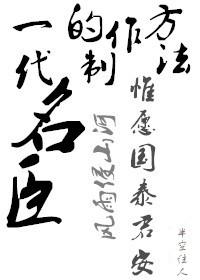 一代名臣
的制作方法
风雨侵山河
惟愿国泰君安
半空佳人